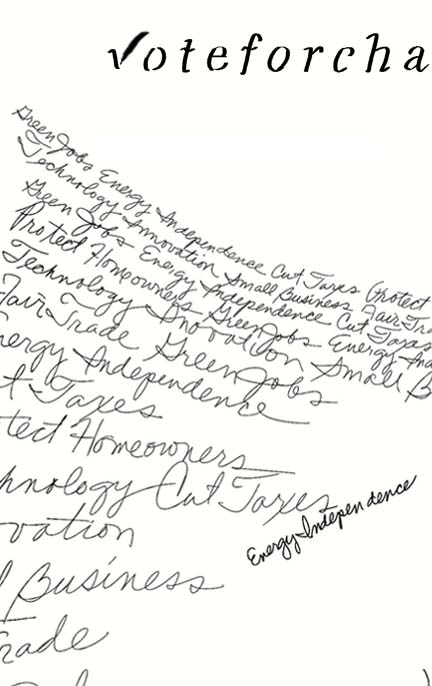 voteforcha
Green Jobs Energy Independence Cut Taxes Protect
Technology Innovation Small Business Fair Tra
Green Jobs Energy Independence Cut Taxes
Protect Homeowners Green Jobs Energy Ind
Technology Innovation Small B
Fair Trade Green Jobs
nergy Independence
t Taxes
tect Homeowners
hnology Cut Taxes
Energy Independence
vation
l Business
rade